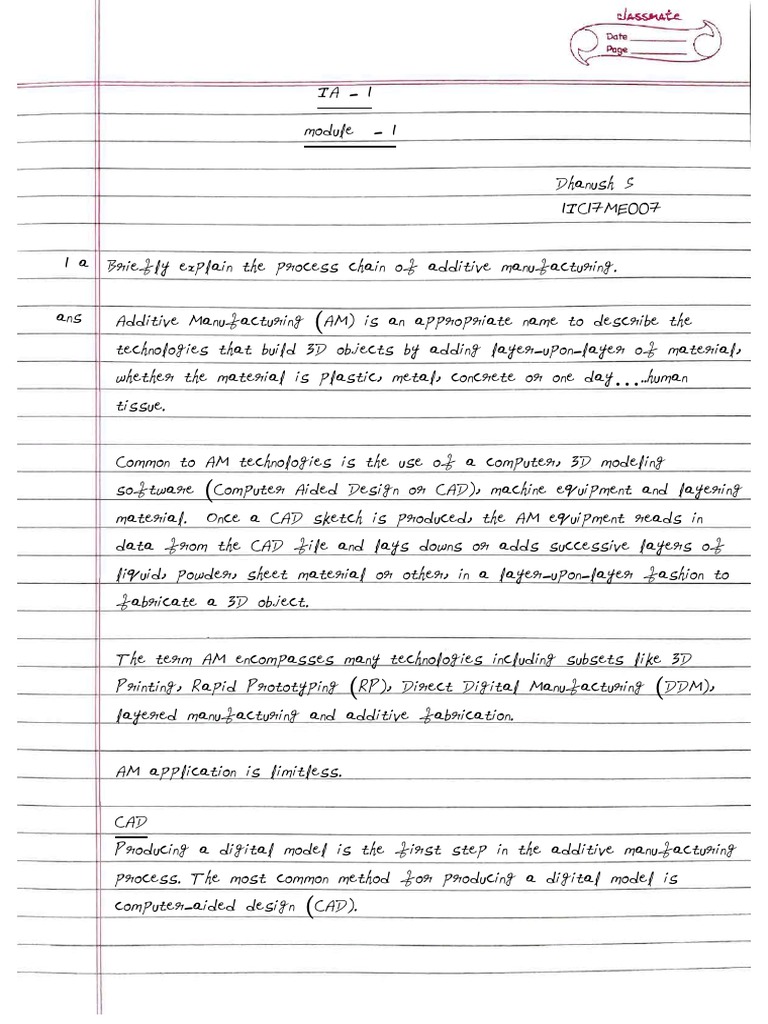 classmate
Date
Page
IA - 1
module - 1
Dhanush S
1IC17ME007
1 a Briefly explain the process chain of additive manufacturing.
ans Additive Manufacturing (AM) is an appropriate name to describe the
technologies that build 3D objects by adding layer-upon-layer of material,
whether the material is plastic, metal, concrete or one day.....human
tissue.
Common to AM technologies is the use of a computer, 3D modeling
software (Computer Aided Design or CAD), machine equipment and layering
material. Once a CAD sketch is produced, the AM equipment reads in
data from the CAD file and lays downs or adds successive layers of
liquid, powder, sheet material or other, in a layer-upon-layer fashion to
fabricate a 3D object.
The term AM encompasses many technologies including subsets like 3D
Printing, Rapid Prototyping (RP), Direct Digital Manufacturing (DDM),
layered manufacturing and additive fabrication.
AM application is limitless.
CAD
Producing a digital model is the first step in the additive manufacturing
process. The most common method for producing a digital model is
computer-aided design (CAD).